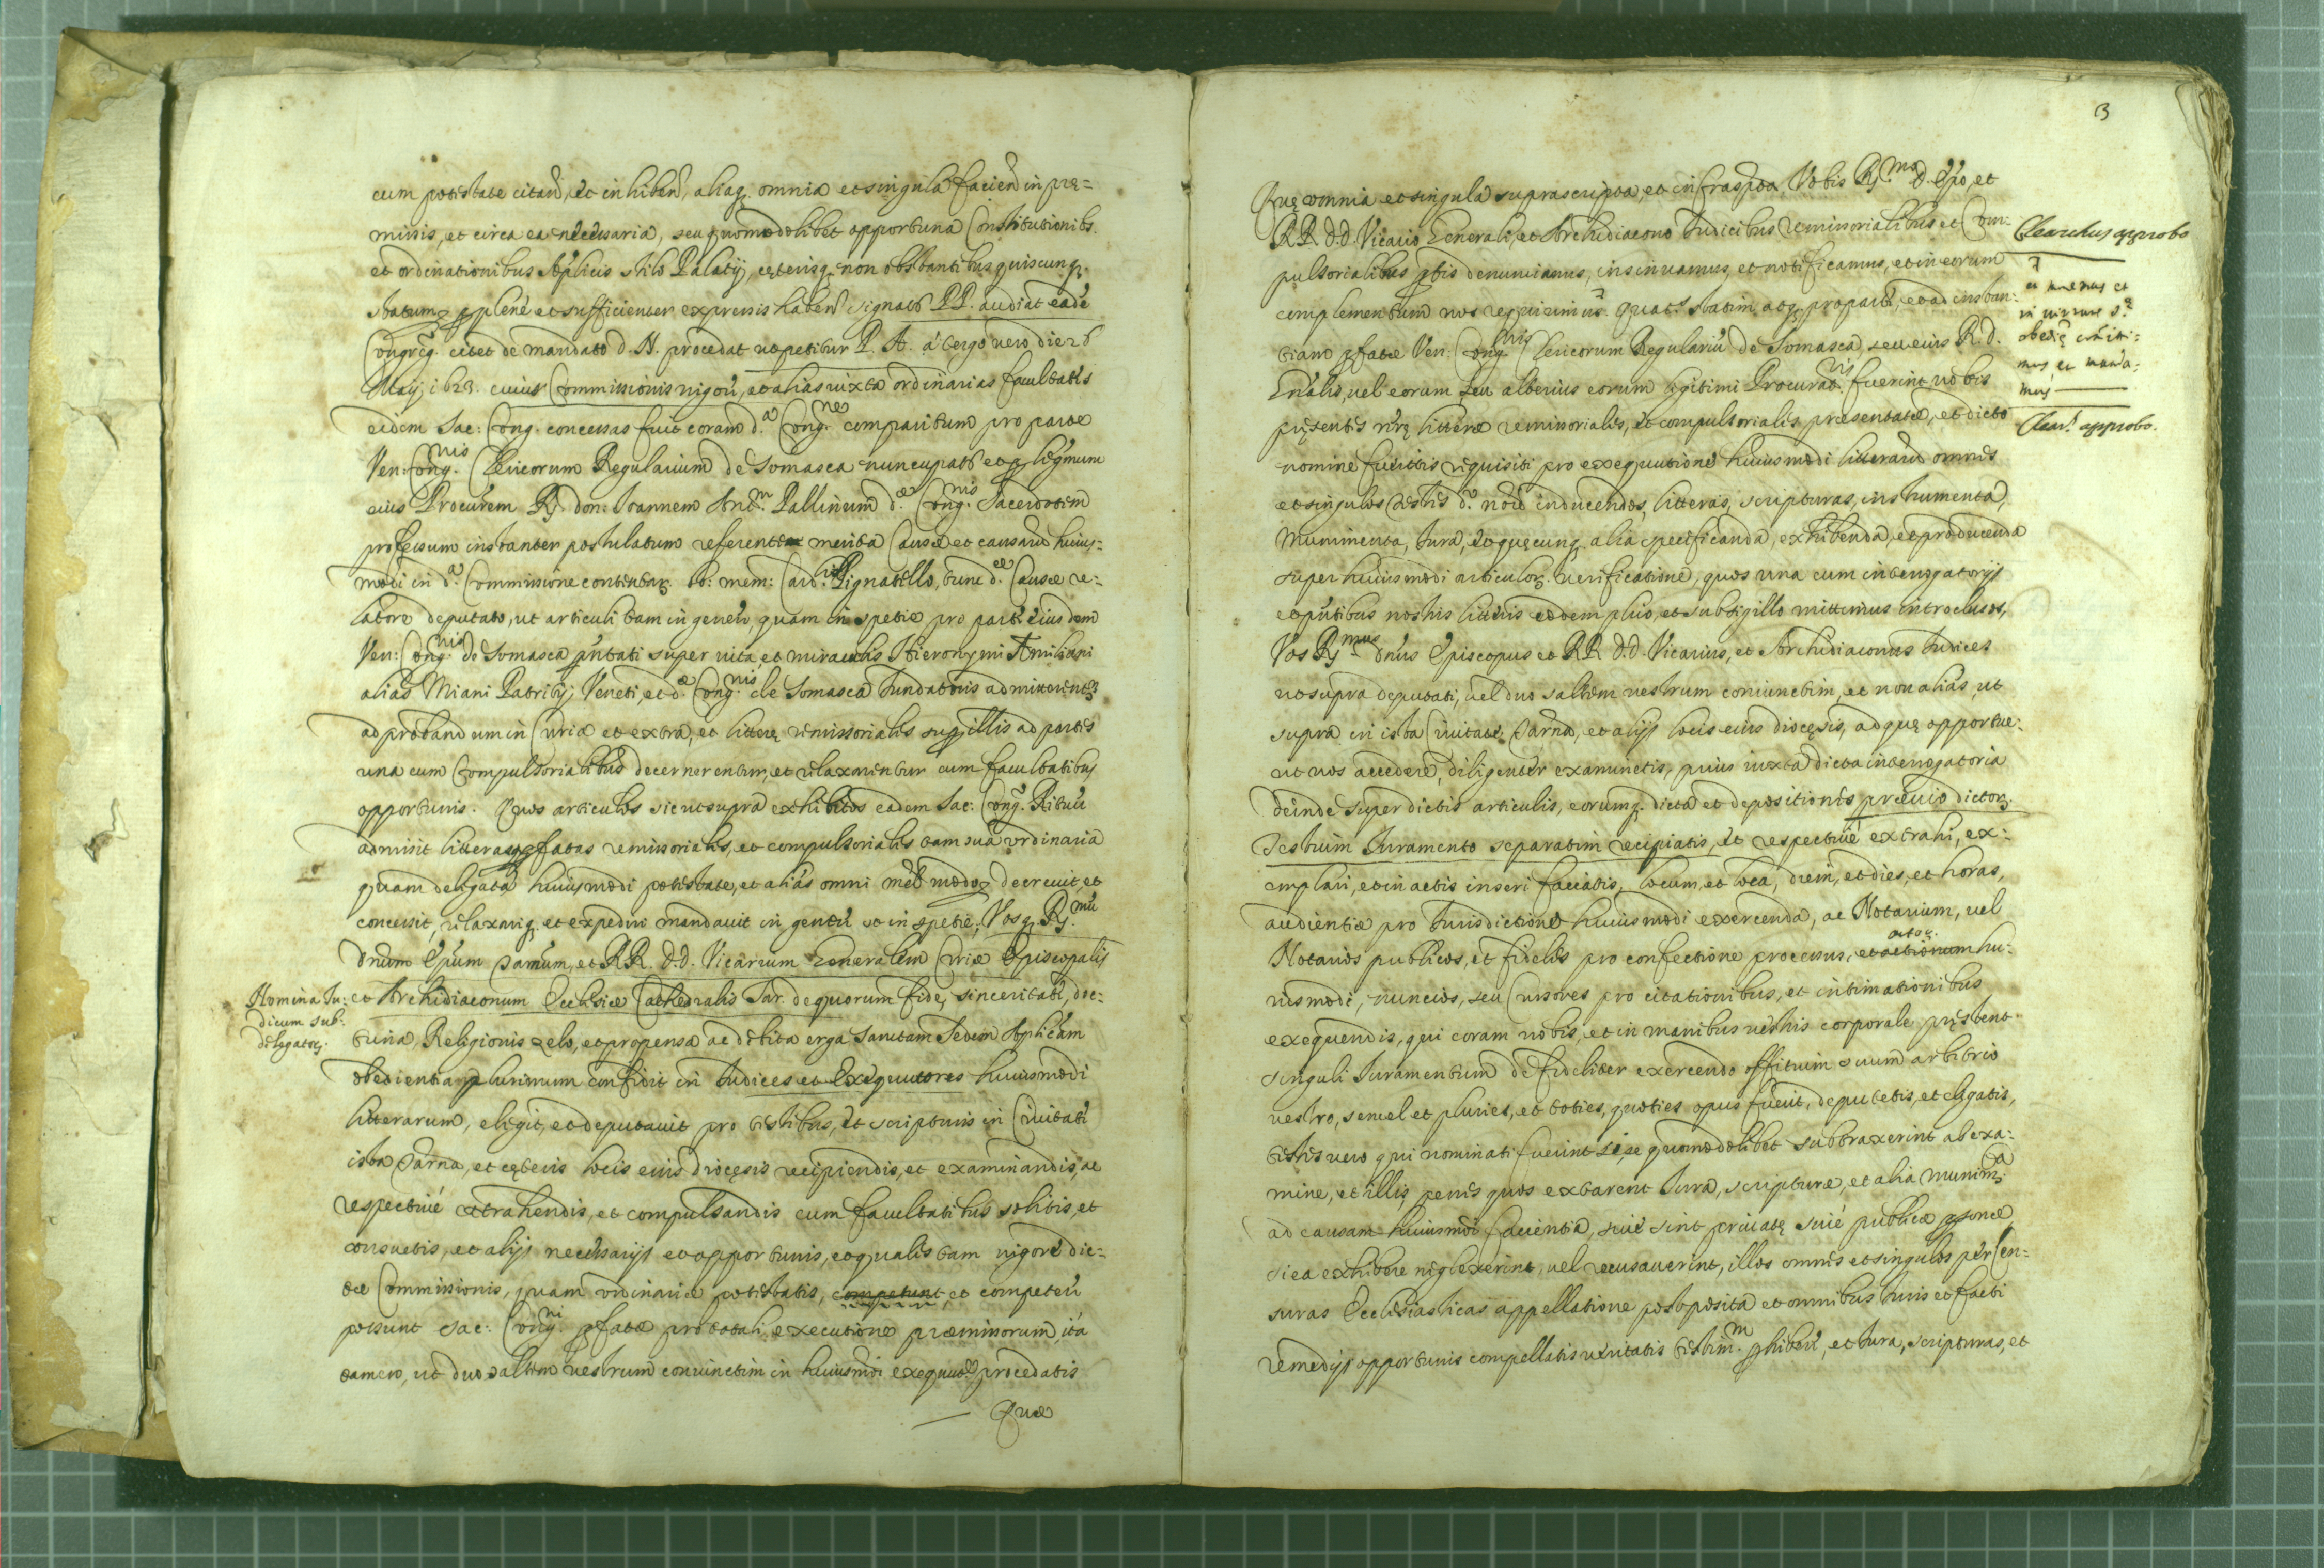 cum potestate citan̄, et inhiben̄, aliaq. omnia et singula facien̄ in pre=
missis, et circa ea necessaria, seu quomodolibet opportuna Constitutionibs.
et ordinationibus Aplicis stilo Palatij, cęterisq. non obstantibus quibuscunq.
statum plenè et sufficienter expressis haben̄ signatr̄ PP. audiat eadē
Congr̄eg. citet de mandato d. N. procedat ut petitur P. A. à tergo vero die 26
Maij 1623. cuius Commissionis vigore, et aliàs iuxta ordinarias facultates
eidem Sac: Cong. concessas fuit coram d.ᵃ Cong.ⁿᵉ comparitum pro parte
Ven: Cong.ⁿⁱˢ Clericorum Regularium de Somasca nuncupatr̄ et p legmum
eius Procūrem R.̄ don. Ioannem Ant.ᵐ Pallinum d.ᵃᵉ Cong.ⁿⁱˢ Sacerdotem
professum instanter postulatum referente merita Causæ et causarū huius=
modi in d.ᵃ Commissione contentar. bo: mem: Card.ˡⁱ Pignatello, tunc d.ᵃᵉ Causæ re=
latore deputato, ut articuli tam in genere, quam in spetie pro parte eiusdem
Ven: Cong.ⁿⁱˢ de Somasca pn̄tati super vita, et miraculis Hieronymi Æmiliani
aliàs Miani Patritij Veneti, et d.ᵃᵉ Cong.ⁿⁱˢ de Somasca fundatoris admitterentr̄
ad probandum in Curia et extra, et litterę remissoriales super illis ad partes
una cum Compulsorialibus decernerentur, et relaxarentur cum facultatibus
opportunis. Quos articulos sicut supra exhibitos eadem Sac: Cong. Rituū
admisit litterasq. pfatas remissoriales, et compulsoriales tam sua ordinaria
quam delegata huiusmodi potestate, et aliàs omni mel. modo decrevit, et
concessit, relaxariq. et expediri mandavit in genere et in spetie, Vosq. R.ᵐᵘ̄
Dnum Ep̄um Sarnum, et RR. d.d. Vicarium Generalem Curiæ Episcopalis
Nomina Iu:
dicum sub:
delegator.
et Archidiaconum Ecclesiæ Cathedralis Sar. de quorum fide, sinceritate, doc=
trina, Religionis zelo, et propensa ac debita erga Sanctam Sedem Aplicam
obedientia plurimum confidit in Iudices et Exequutores huiusmodi
litterarum, elegit, et deputavit pro testibus, et scripturis in Civitate
ista Sarna, et cęteris locis eius diocęsis recipiendis, et examinandis, ac
respectivè extrahendis, et compulsandis cum facultatibus solitis, et
consuetis, et alijs necessarijs et opportunis, et qualis tam vigore dic=
tæ Commissionis, quam ordinariæ potestatis, competunt, et competere
possunt Sac: Cong.ⁿⁱ pfatæ pro totali executione præmissorum, ita
tamen, ut duo saltem vestrum coniunctim in huiusmoi exequutne procedatis
Quæ
3
Quę omnia et singula suprascripta, et infrasp̄ta, Vobis R.ᵐᵒ D. Ep̄o, et
RR. d.d. Vicario Generali, et Archidiacono Iudicibus remissorialibus et Com:
pulsorialibus pt̄is denunciamus, insinuamus et notificamus, et in eorum
complementum vos requirimus. quat.ˢ statim atq. pro parte, et ad instan:
tiam pfatæ Ven: Cong.ⁿⁱˢ Clericorum Regulariū de Somasca, seu eius R. D.
Gn̄alis, vel eorum seu alterius eorum legitimi Procurat.ʳⁱˢ fuerint vobis
pręsentes nr̄ę litteræ remissoriales, et compulsoriales presentatæ, et dicto
nomine fueritis requisiti pro exequutione huiusmodi litterarū omnes
et singulos testes d.º noīe inducendos, litteras, scripturas, instrumenta,
Munimenta, Iura, et quęcunq. alia specificanda, exhibenda, et producenda
super huiusmodi articulor. verificatione, quos una cum interrogatorijs
et pn̄tibus nostris litteris eodem plico, et sub sigillo mittimus introclusos,
Vos R.ᵐᵘˢ Dnus Episcopus et RR. d.d. Vicarius, et Archidiaconus Iudices
ut supra deputati, vel duo saltem vestrum coniunctim, et non aliàs, ut
supra in ista Civitate Sarna, et alijs locis eius diocęsis, ad quę opportue:
rit vos accedere, diligenter examinetis, prius iuxta dicta interrogatoria
deinde super dictis articulis, eorumq. dicta et depositiones prævio dictor.
Testium Iuramento separatim recipiatis, et respectivè extrahi, ex:
emplari, et in actis inseri faciatis, locum, et loca, diem, et dies, et horas,
audientiæ pro Iurisdictione huiusmodi exercenda, ac Notarium, vel
Notarios publicos, et fideles pro confectione processus, et actionum actor. hu:
iusmodi, nuncios, seu Cursores pro citationibus, et intimationibus
exequendis, qui coram vobis, et in manibus vestris corporale pręstent
singuli Iuramentum de fideliter exercendo offitium suum arbitrio
vestro, semel et pluries, et toties, quoties opus fuerit, deputetis, et eligatis,
testes vero qui nominati fuerint si se quomodolibet subtraxerint ab exa:
mine, et illis, penes quos extarent Iura, scripturæ, et alia munim.ᵗᵃ
ad causam huiusmoi facientia, sivè sint privatę sivè publicæ psonæ,
si ea exhibere neglexerint, vel recusaverint, illos omnes et singulos per Cen:
suras Ecclesiasticas appellatione postposita et omnibus Iuris et facti
remedijs opportunis compellatis veritatis testim.ᵐ phibere, et Iura, scripturas, et
Clearchus approbo
et
in virtute S.ᵃᵉ
obedię committi:
mus et manda:
mus
Clear.ˢ approbo.